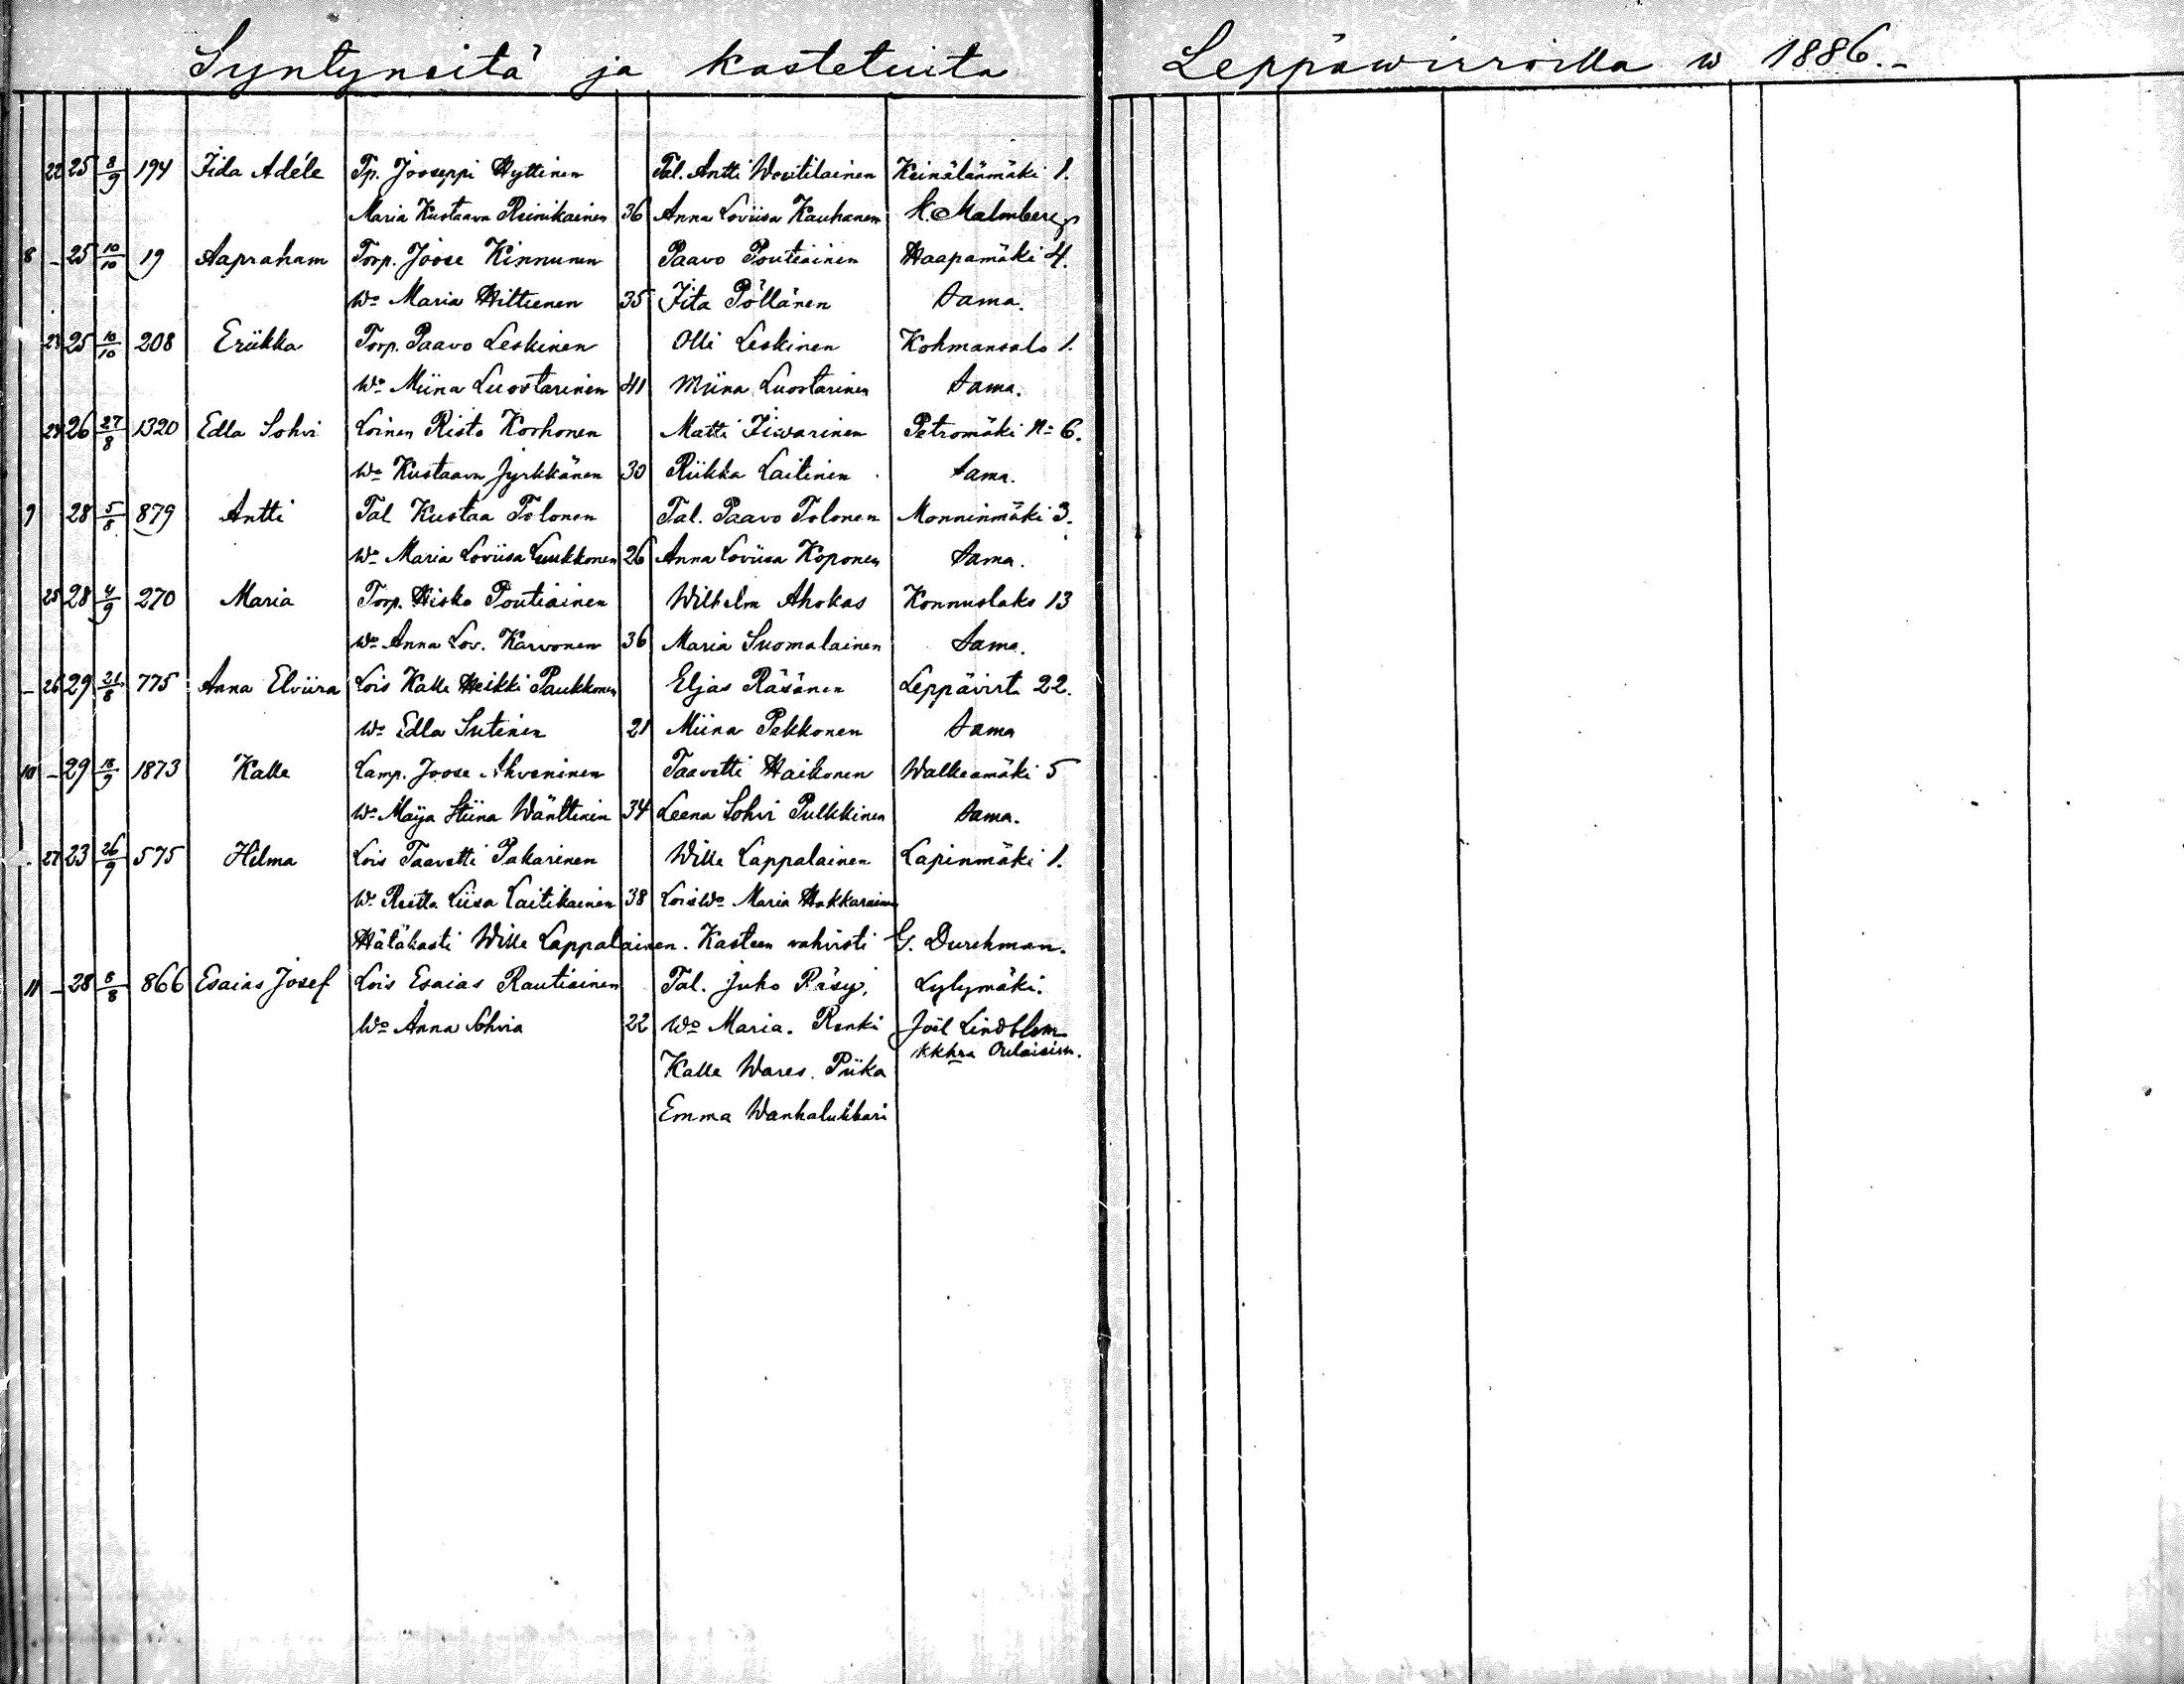 Syntyneitä ja kastetuita Leppäwirroilla w 1886.-
22 25 8/9 194 Iida Adéle Tp. Jooseppi Hyttinen Tal. Antti Woutilainen Keinälänmäki 1.
Maria Kustaava Reinikainen 36 Anna Loviisa Kauhanen H. Malmberg
8 - 25 10/10 19 Aapraham Torp. Joose Kinnunen Paavo Poutiainen Haapamäki 4.
Wo Maria Hiltunen 35 Iita Pöllänen Sama.
23 25 10/10 208 Eriikka Torp. Paavo Leskinen Olli Leskinen Kohmansalo 1.
Wo Miina Luostarinen 41 Miina Luostarinen Sama.
24 26 27/8 1320 Edla Sohvi Loinen Risto Korhonen Matti Iivarinen Petromäki No 6.
Wo Kustaava Jyrkkänen 30 Riikka Laitinen Sama.
9 28 5/8 879 Antti Tal Kustaa Tolonen Tal. Paavo Tolonen Monninmäki 3.
Wo Maria Loviisa Luukkonen 26 Anna Loviisa Koponen Sama.
25 28 4/9 270 Maria Torp. Hisko Poutiainen Wilhelm Ahokas Konnuslaks 13
Wo Anna Lov. Karvonen 36 Maria Suomalainen Sama.
- 26 29 21/8 775 Anna Elviira Lois Kalle Heikki Paukkonen Eljas Räsänen Leppävirt. 22.
Wo Edla Sutinen 21 Miina Pekkonen Sama
10 - 29 18/9 1873 Kalle Lamp. Joose Ahveninen Taavetti Haikonen Walkeamäki 5
Wo Maija Stiina Wänttinen 34 Leena Sohvi Pulkkinen Sama.
27 23 26/9 575 Hilma Lois Taavetti Pakarinen Wille Lappalainen Lapinmäki 1.
Wo Reetta Liisa Laitikainen 38 Lois Wo Maria Hakkarainen
Hätäkasti Wille Lappalainen. Kasteen vahvisti G. Durchman.
11 - 28 6/8 866 Esaias Josef Lois Esaias Rautiainen Tal. Juho Räsy, Lylymäki.
Wo Anna Sohvia 22 Wo Maria. Renki Joël Lindblom
kkhra Oulaisim.
Kalle Wares. Piika
Emma Wanhalukkari